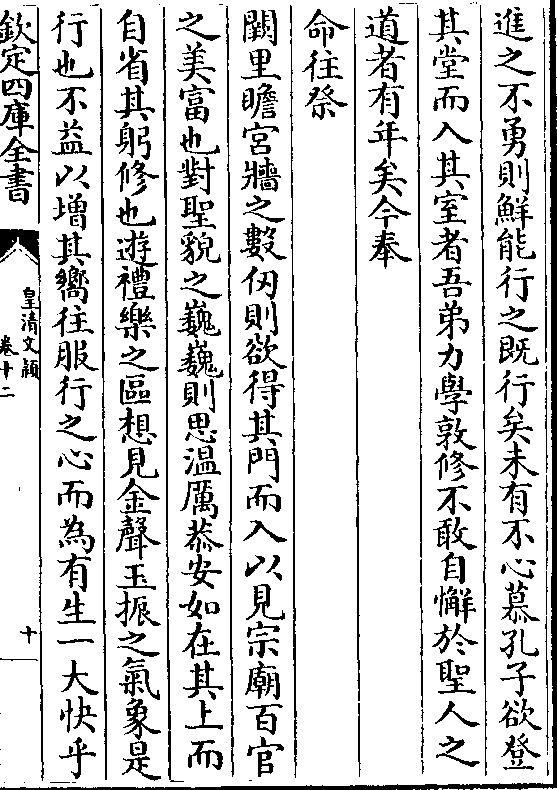 進之不勇則鮮能行之既行矣未有不心慕孔子欲登
其堂而入其室者吾弟力學敦修不敢自懈於聖人之
道者有年矣今奉
命往祭
闕里瞻宮牆之數仞則欲得其門而入以見宗廟百官
之美富也對聖貌之巍巍則思温厲恭安如在其上而
自省其躬修也遊禮樂之區想見金聲玉振之氣象是
行也不益以增其嚮往服行之心而為有生一大快乎
欽定四庫全書
皇清文穎
卷十二
十